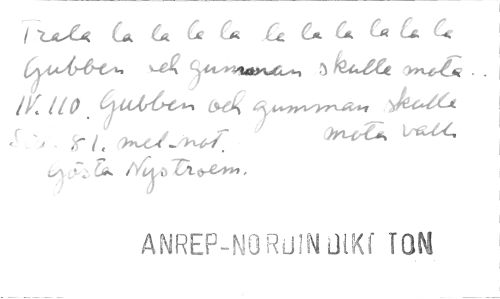 Trala la la la la la la la la la la
Gubben och gumman skulle mota..
IV.110. Gubben och gumman skulle
mota vall
81. mel. not.
Gösta Nystroem.
ANREP-NORDIN DIKT TON